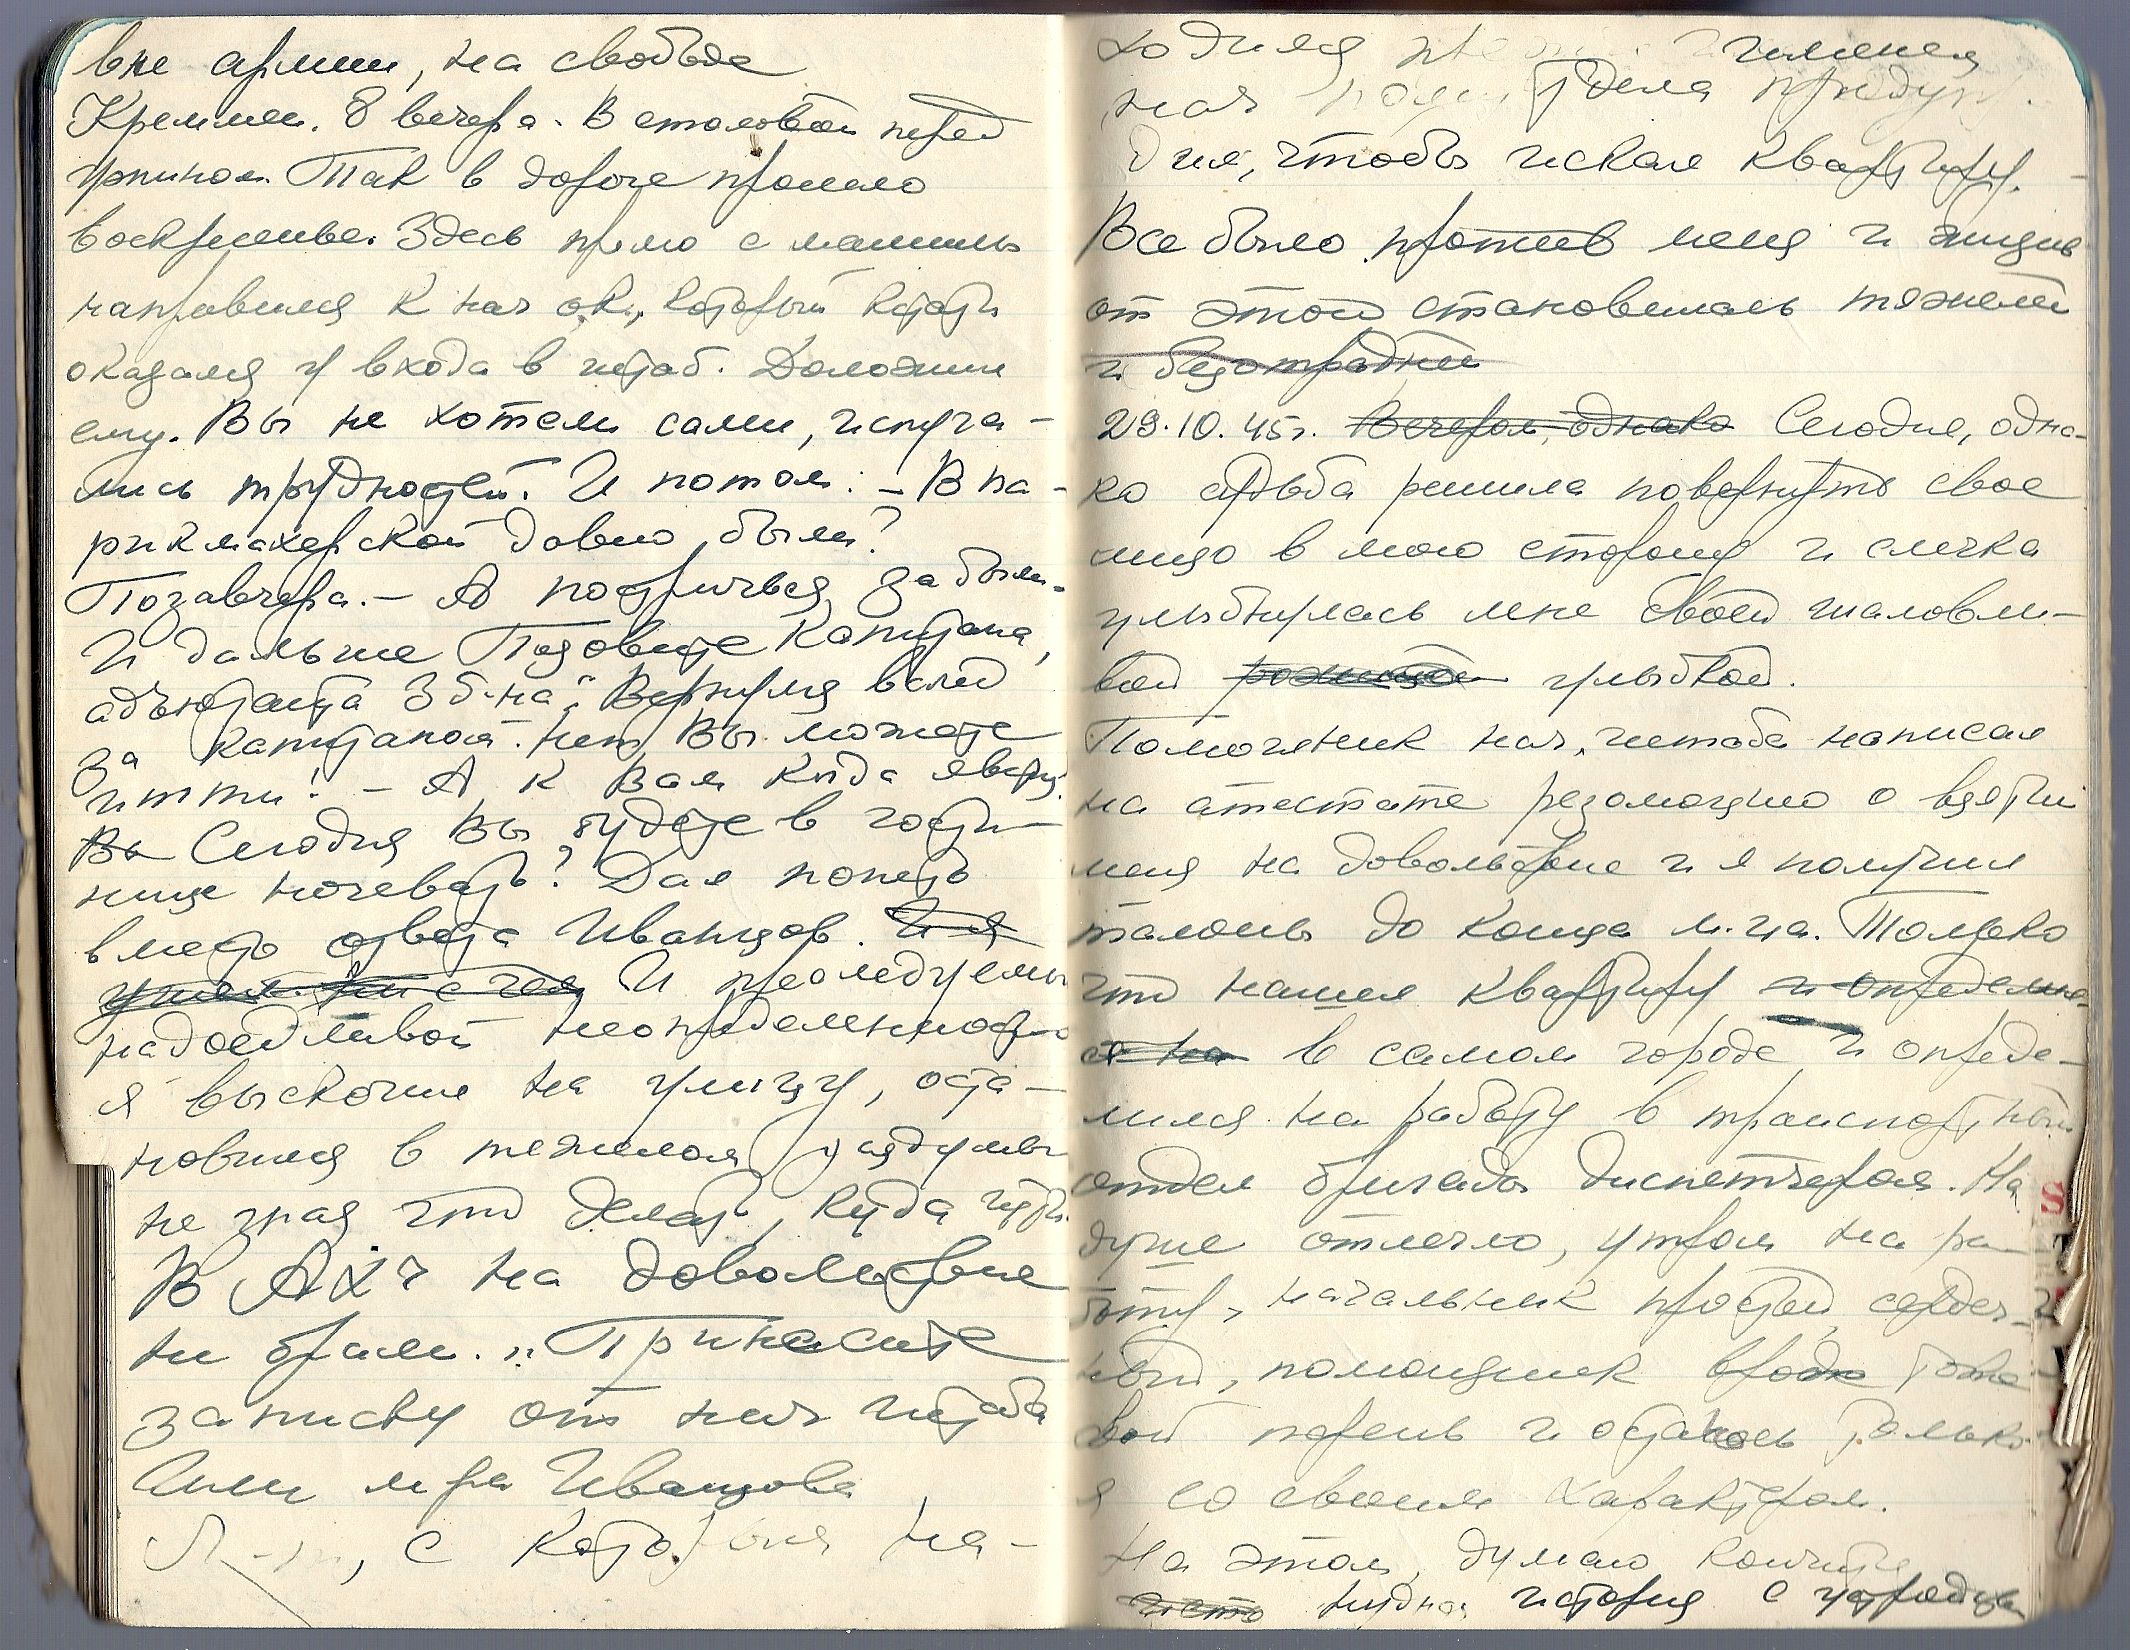 вне армии, на свободе
Креммен. 8 вечера. В столовой перед
ужином. Так в дороге прошло
воскресенье. Здесь прямо с машины
направился к нач ок., который кстати
оказался у входа в штаб. Доложил
ему. Вы не хотели сами, испуга-
лись трудностей. И потом: – В па-
рикмахерской давно были?
Позавчера. – А постричься забыли.
И дальше Позовите капитана,
адъютанта 3 б-на". Вернулся вслед
за капитаном. Нет, Вы можете
итти! – А к Вам куда
Вы Сегодня Вы будете в гости-
нице ночевать? Дал понять
вместо ответа Иванцов. И я
И преследуемый
надоедливой неопределенностью
я выскочил на улицу, оста-
новился в тяжелом раздумьи
не зная что делать, куда идти.
В АХЧ на довольствие
не брали. „Принесите
записку от нач штаба
Или м-ра Иванцова
с которым на-
ходился
нач отдела
дил, чтобы искал квартиру.
Все было против меня и жизнь
от этого становилась тяжелей
и безотрадней
29.10.45г. Вечером, однако Сегодня, одна-
ко судьба решила повернуть свое
лицо в мою сторону и слегка
улыбнулась мне своей шаловли-
вой улыбкой.
Помощник нач. штаба написал
на атестате резолюцию о взятии
меня на довольствие и я получил
талоны до конца м-ца. Только
что нашел квартиру и определил-
ся на в самом городе и опреде-
лился на работу в транспортный
отдел бригады диспетчером. На
душе отлегло, утром на ра-
боту, начальник простой, сердеч-
ный, помощник вроде тоже
свой парень и осталось только
я со своим характером.
На этом, думаю кончится
чисто нудная история с